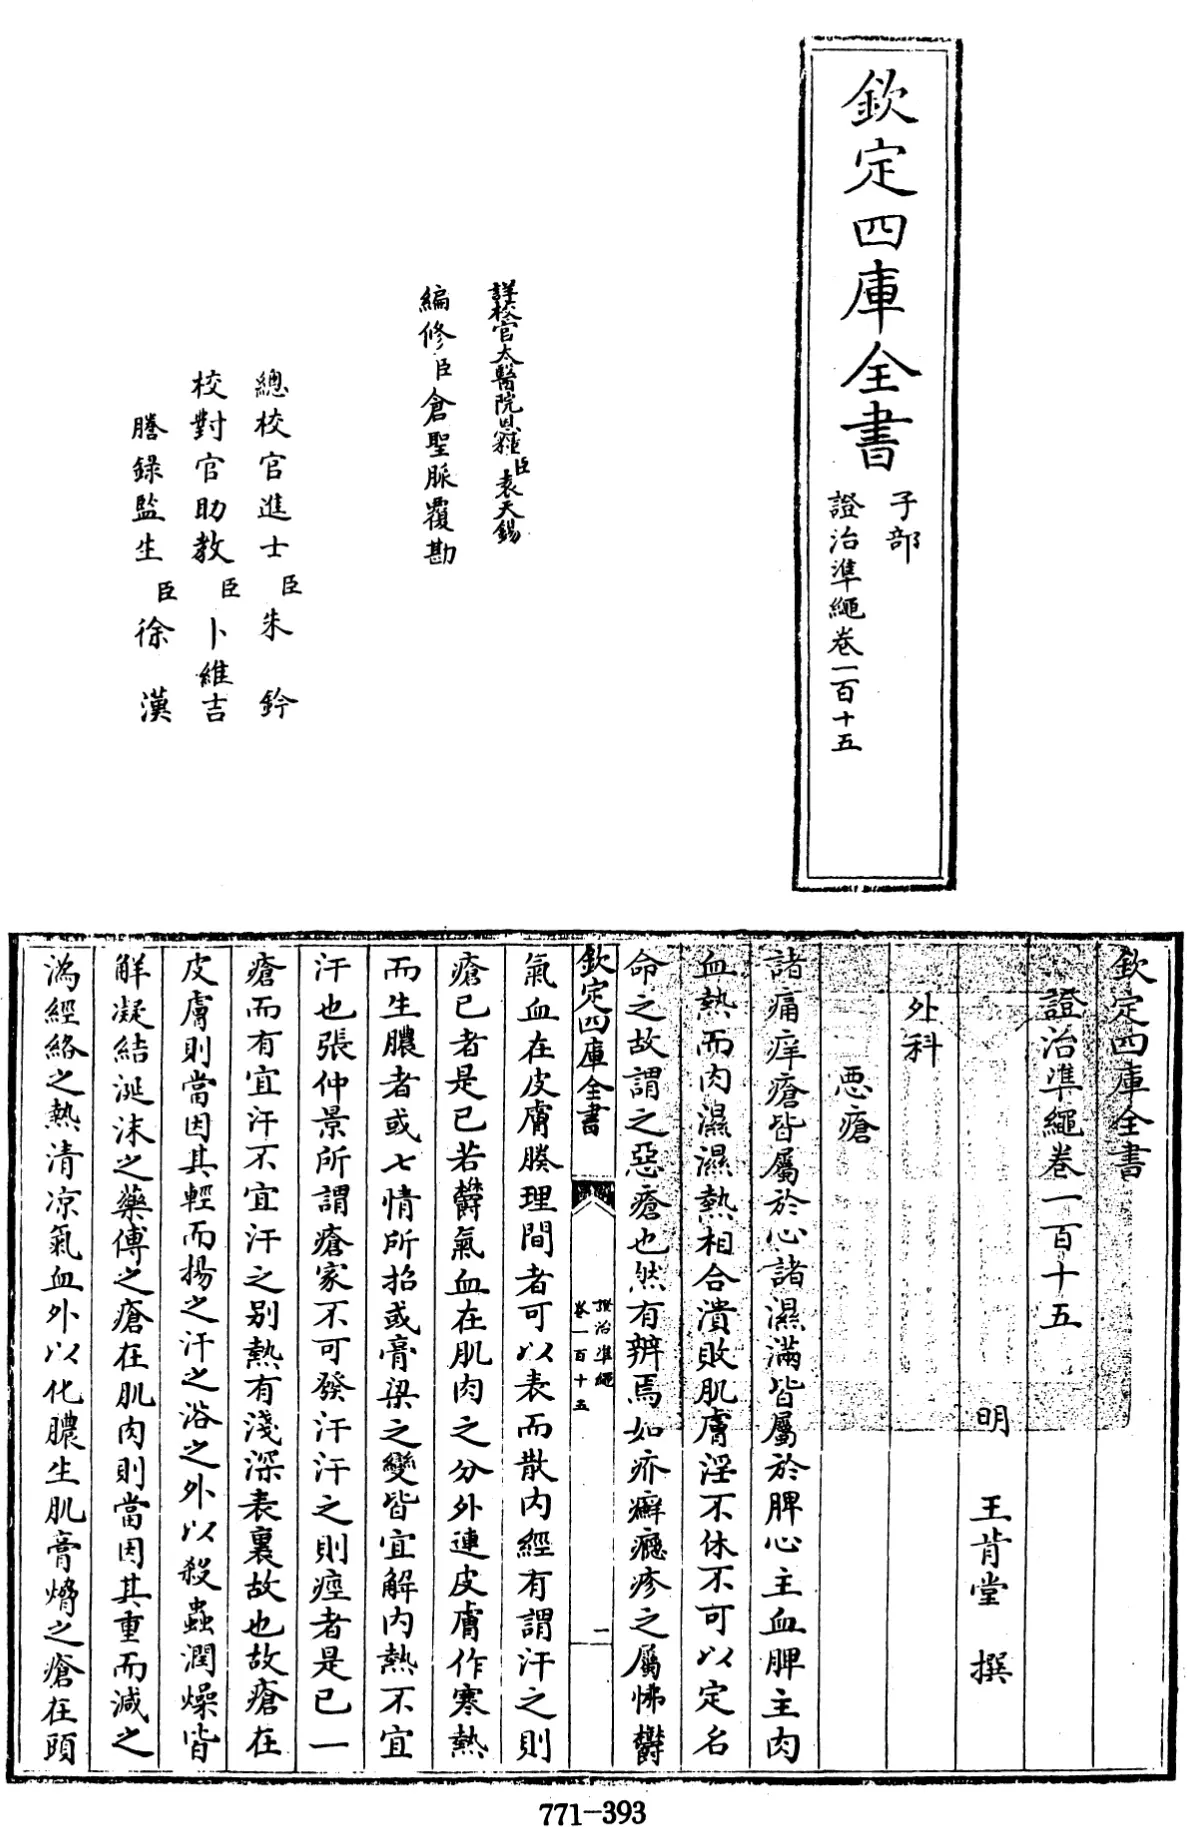 欽定四庫全書
子部
證治準繩卷一百十五
詳校官太醫院恩糧臣袁天錫
編修臣倉聖脈覆勘
總校官進士臣朱鈐
校對官助教臣卜維吉
謄錄監生臣徐漢
欽定四庫全書
證治準繩卷一百十五
明 王肯堂 撰
外科
惡瘡
諸痛痒瘡皆屬於心諸濕滿皆屬於脾心主血脾主肉
血熱而肉濕濕熱相合潰敗肌膚淫不休不可以定名
命之故謂之惡瘡也然有辨焉如疥癬癮疹之屬怫鬱
欽定四庫全書
證治準繩
卷一百十五
一
氣血在皮膚腠理間者可以表而散内經有謂汗之則
瘡已者是已若鬱氣血在肌肉之分外連皮膚作寒熱
而生膿者或七情所招或膏粱之變皆宜解内熱不宜
汗也張仲景所謂瘡家不可發汗汗之則痙者是已一
瘡而有宜汗不宜汗之别熱有淺深表裏故也故瘡在
皮膚則當因其輕而揚之汗之浴之外以殺蟲潤燥皆
解凝結涎沫之藥傅之瘡在肌肉則當因其重而減之
瀉經絡之熱清凉氣血外以化膿生肌膏熁之瘡在頭
771-393